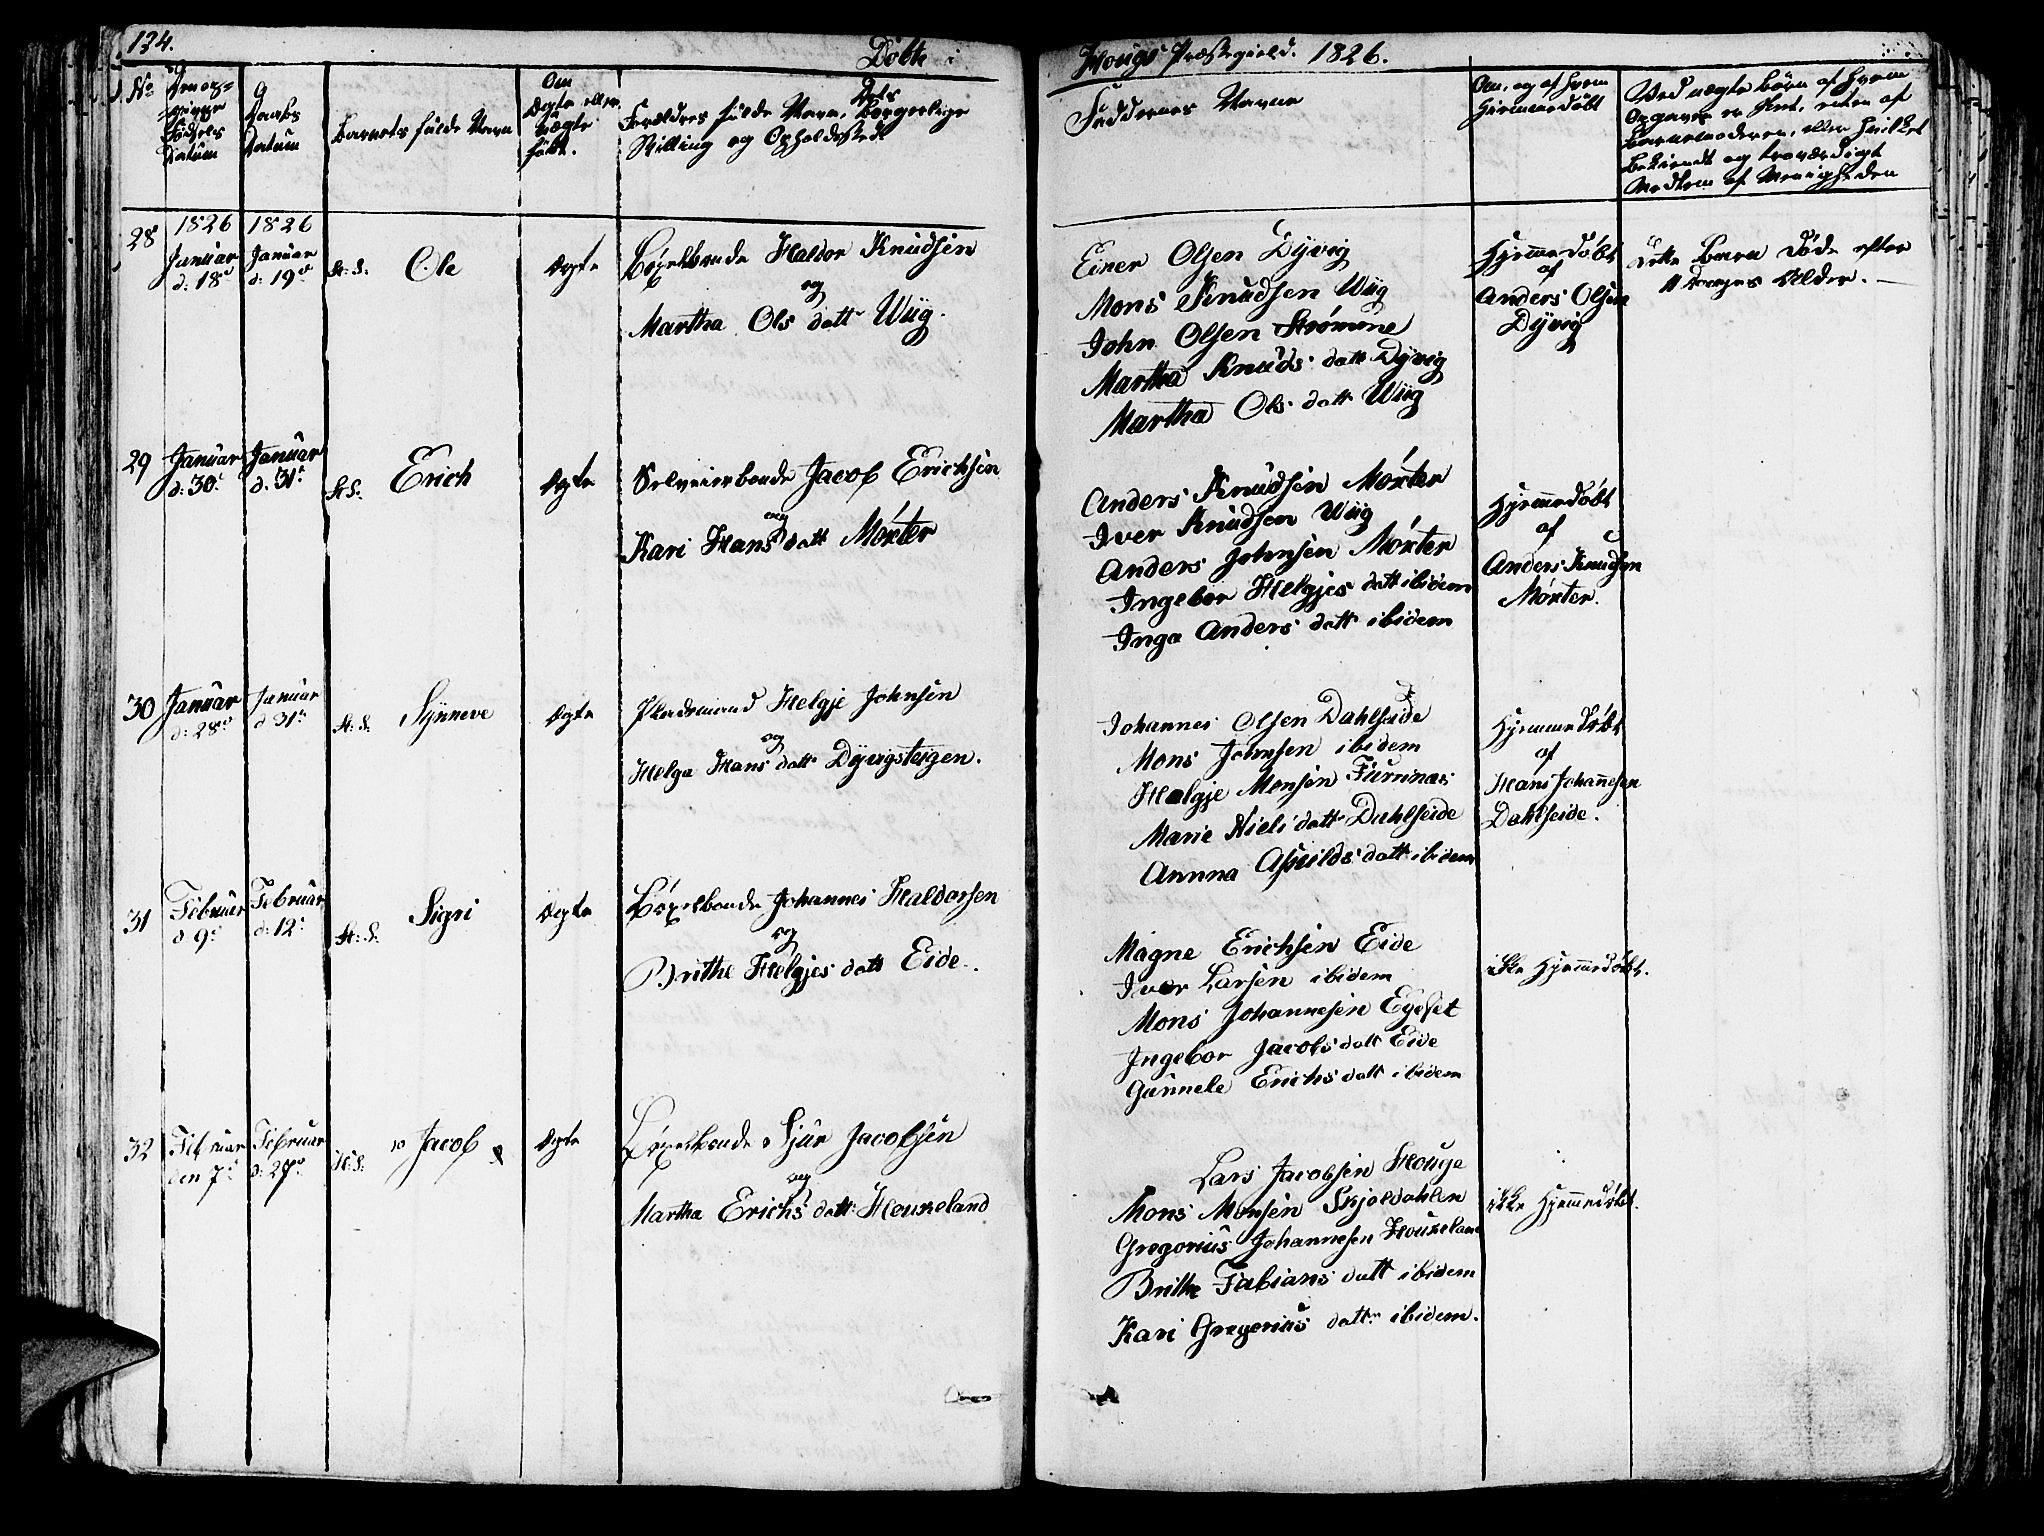 134.
Døbte i
Hougs Præstegield. 1826.
No
Fødsels Datum
Daabs Datum
Barnets fulde Navn
Om Ægte eller uægte født.
Forældres fulde Navn, Dets Borgerlige
Stilling og Opholdssted
Faddernes Navne
Om, og af hvem
Hiemmedøbt
Ved uægte Børn af hvem
Opgaven er skeet, enten af
Barnemoderen, eller hvilket
bekiendt og troværdigt
Medlem af Menigheden
28
1826
Januar
d: 18de
1826
Januar
d: 19de
H. S.
Ole
Ægte
Bøxelbonde Haldor Knudsen
og
Martha Ols datt Wiig.
Einer Olsen Dyvig
Mons Knudsen Wiig
John Olsen Strømme
Martha Knuds datt Dyvig
Martha Ols datt Wiig
Hjemmedøbt
af
Anders Olsen
Dyvig
Dette Barn døde efter
Dages Alder.
29
Januar
d: 30t
Januar
d: 31t
H. S.
Erich
Ægte
Selveierbonde Jacob Erichsen
og
Kari Hans datt Mørter
Anders Knudsen Mørter
Iver Knudsen Wiig
Anders Johnsen Mørter
Ingebor Helgjes datt ibidem
Inga Anders datt ibidem
Hjemmedøbt
af
Anders Knudsen
Mørter.
30
Januar
d: 28de
Januar
d: 31t
H. S.
Synneve
Ægte
Pladsmand Helgje Johnsen
og
Helga Hans datt Dyvigsteigen.
Johannes Olsen Dahlseide
Mons Johnsen ibidem
Helgje Monsen Furrinæs
Marie Niels datt Dahlseide
Annna Askilds datt ibidem
Hjemmedøbt
af
Hans Johannesen
Dahlseide.
31
Februar
d: 9d
Februar
d: 12t
H. S.
Sigri
Ægte
Bøxelbonde Johannes Haldorsen
og
Brithe Helgjes datt Eide.
Magne Erichsen Eide
Iver Larsen ibidem
Mons Johannesen Egeset
Ingebor Jacobs datt Eide
Gunnele Erichs datt ibidem
ikke Hjemmedøbt.
32
Februar
den 7d
Februar
d: 27de
H. S.
Jacob
Ægte
Bøxelbonde Sjur Jacobsen
og
Martha Erichs datt Houkeland
Lars Jacobsen Houge
Mons Monsen Skjoldahlen
Gregorius Johannesen Houkeland
Brithe Fabians datt ibidem
Kari Gregorius datt ibidem.
ikke Hjemmedøbt.